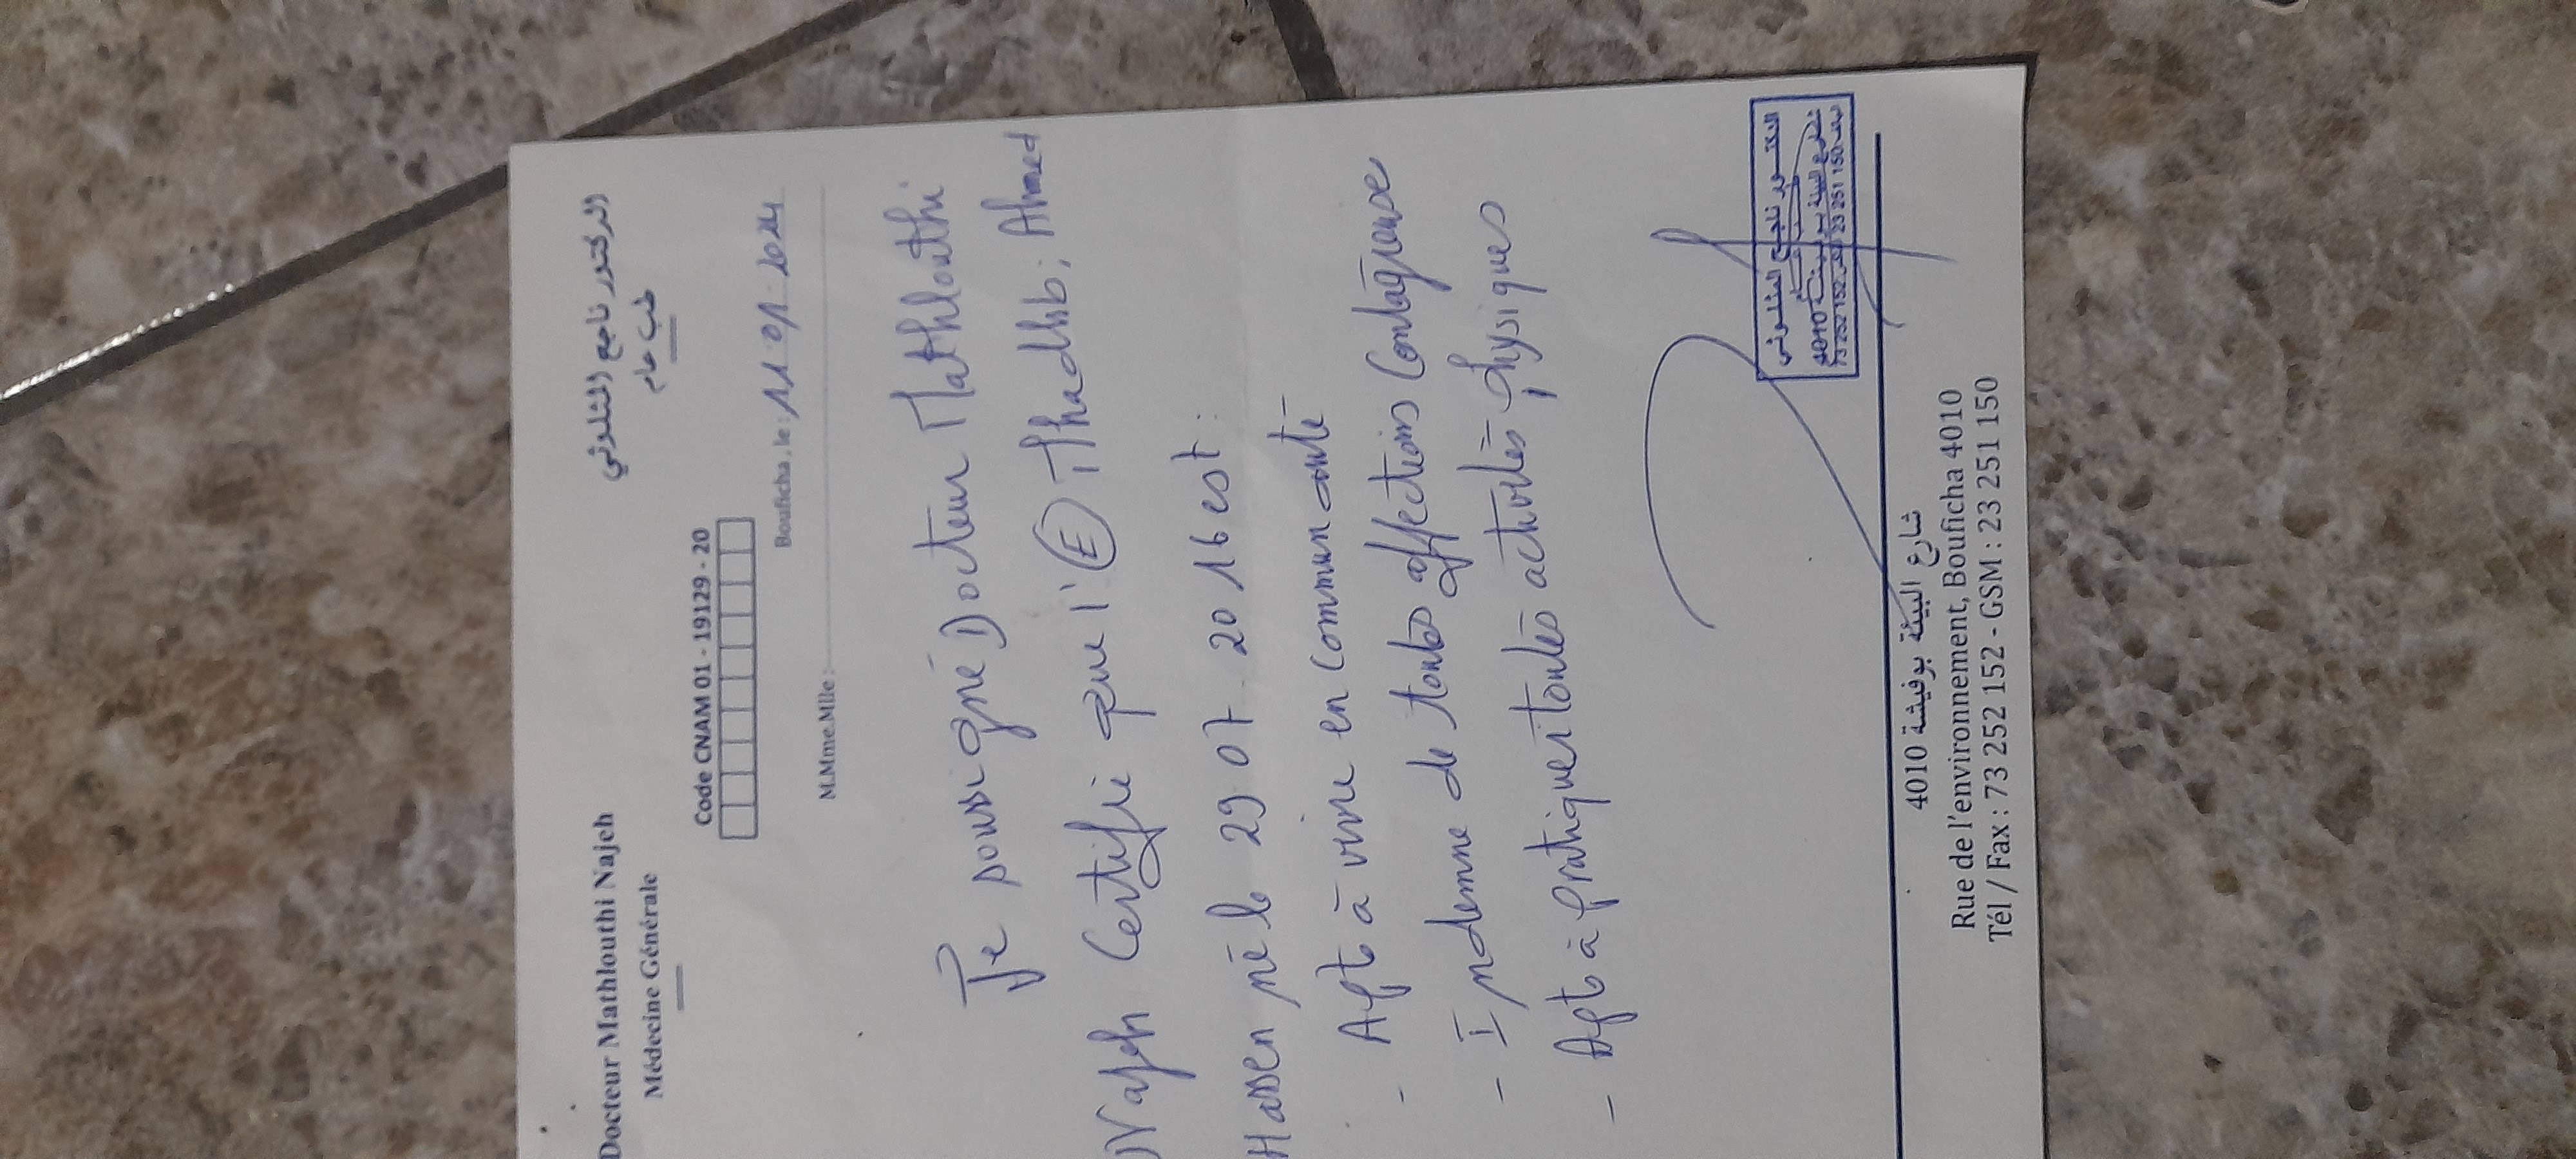 Docteur Mathlouthi Najeh
الدكتور ناجح المثلوثي
Médecine Générale
طب عام
Code CNAM 01 - 19129 - 20
Bouficha , le : 11-01-2024
M.Mme.Mlle :
Je soussigné Docteur Mathlouthi
Najeh Certifie que l' (E) Thadhb; Ahmed
Hassen né le 29-07-2016 est :
- Apt à vivre en Communauté
- Indemne de toutes affections Contagieuse
- Apt à pratiquer toutes activités physiques
الدكتور ناجح المثلوثي
طب عام
شارع البيئة بوفيشة 4010
شارع البيئة بوفيشة 4010
Rue de l'environnement, Bouficha 4010
Tél / Fax : 73 252 152 - GSM : 23 251 150